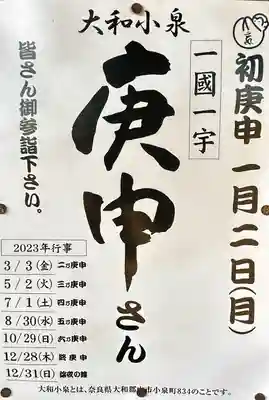 大和小泉
初庚申 一月二日(月)
一國一宇
庚申さん
皆さん御参詣下さい。
2023年行事
3/3(金) 二ノ庚申
5/2(火) 三ノ庚申
7/1(土) 四ノ庚申
8/30(水) 五ノ庚申
10/29(日) 六ノ庚申
12/28(木) 終庚申
12/31(日)
大和小泉とは、奈良県大和郡山市小泉町834のことです。